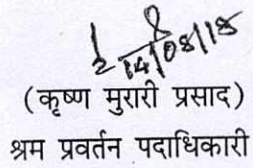 14/08/18
(कृष्ण मुरारी प्रसाद)
श्रम प्रवर्तन पदाधिकारी